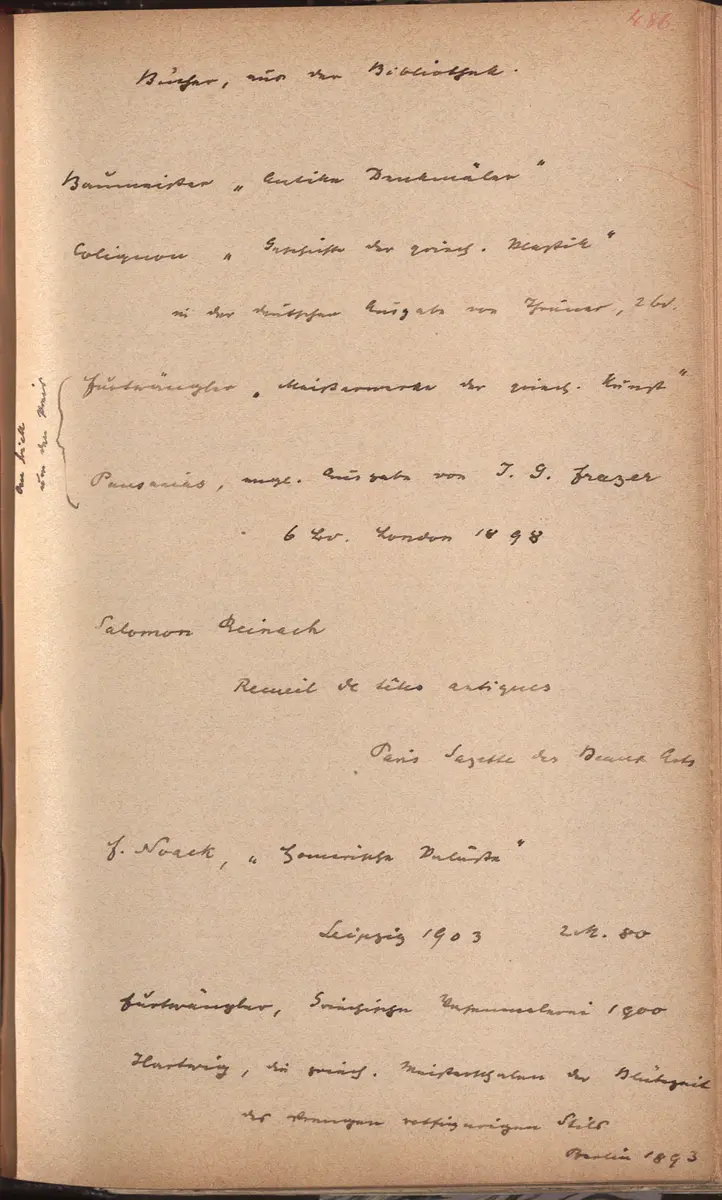 486
Bücher, aus der Bibliothek.
Baumeister „Antike Denkmäler"
Colignon „Geschichte der griech. Plastik"
in der deutschen Ausgabe von Thrämer, 2 bd.
Furtwängler „Meisterwerke der griech. Kunst"
Pausanias, engl. Ausgabe von J. G. Frazer
6 bd. London 1898
Salomon Reinach
Recueil de têtes antiques
Paris Gazette des Beaux Arts
F. Noack, „Homerische Paläste"
Leipzig 1903 2 M. 80
Furtwängler, Griechische Vasenmalerei 1900
Hartwig, die griech. Meisterschalen der Blütezeit
des strengen rotfigurigen Stils
Berlin 1893